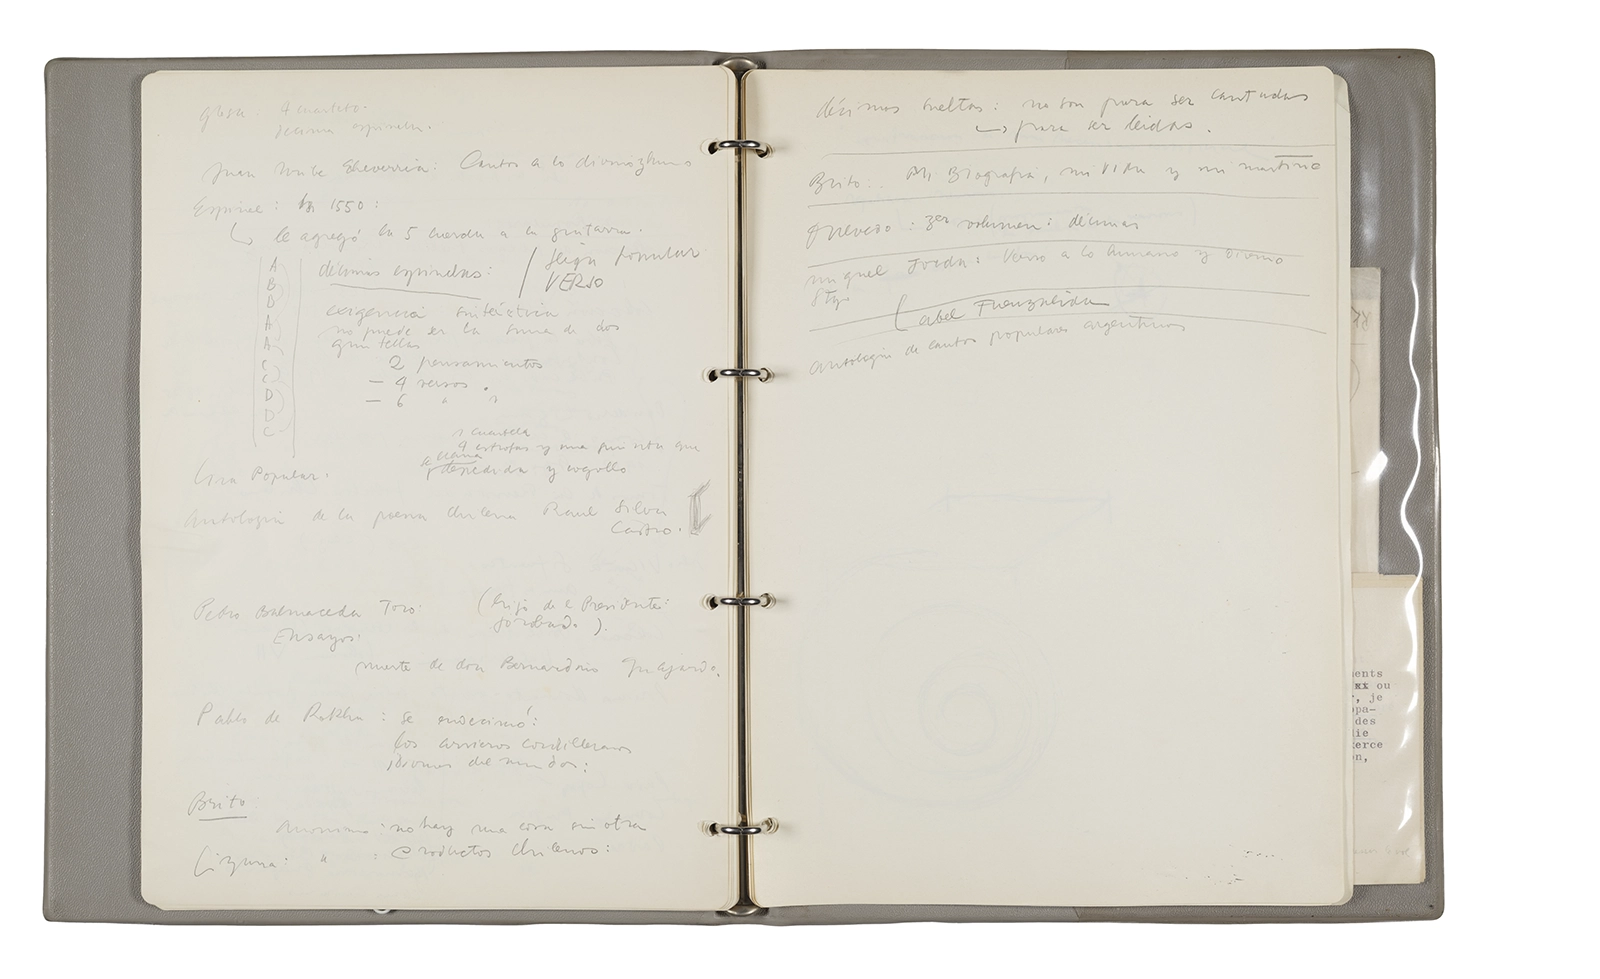 glosa. 4 cuarteto.
décima espinela.
Juan Uribe Echeverría: Cantos a lo divino y humano
Espinel: 1550:
le agregó la 5 cuerda a la guitarra.
A
B
B
A
A
C
C
D
D
C
décimas espinelas: / popular
VERSO
exigencia
no puede ser la suma de dos
quintillas
2 pensamientos
- 4 versos.
- 6 " "
1 cuarteta
4 estrofas y una quinta que
despedida y cogollo
Lira Popular.
Antología de la poesía chilena Raul Silva
Castro.
Pedro Balmaceda Toro. (hijo de el Presidente:
).
Ensayos.
muerte de don Bernardino Guajardo.
Pablo de Rokha: se
los arrieros cordilleranos
idiomas del mundo:
Brito:
Anonimo: no hay una cosa sin otra
Lizana: " : productos chilenos:
décimas sueltas: no son para ser cantadas
para ser leidas.
Brito: Mi Biografia, mi vida y mi martirio
Acevedo: 3er volumen: décimas
Miguel Jordá: Verso a lo humano y divino
Stgo
Label Fuenzalida
Antología de cantos populares argentinos
ents
ou
, je
opa-
des
die
merce
on,